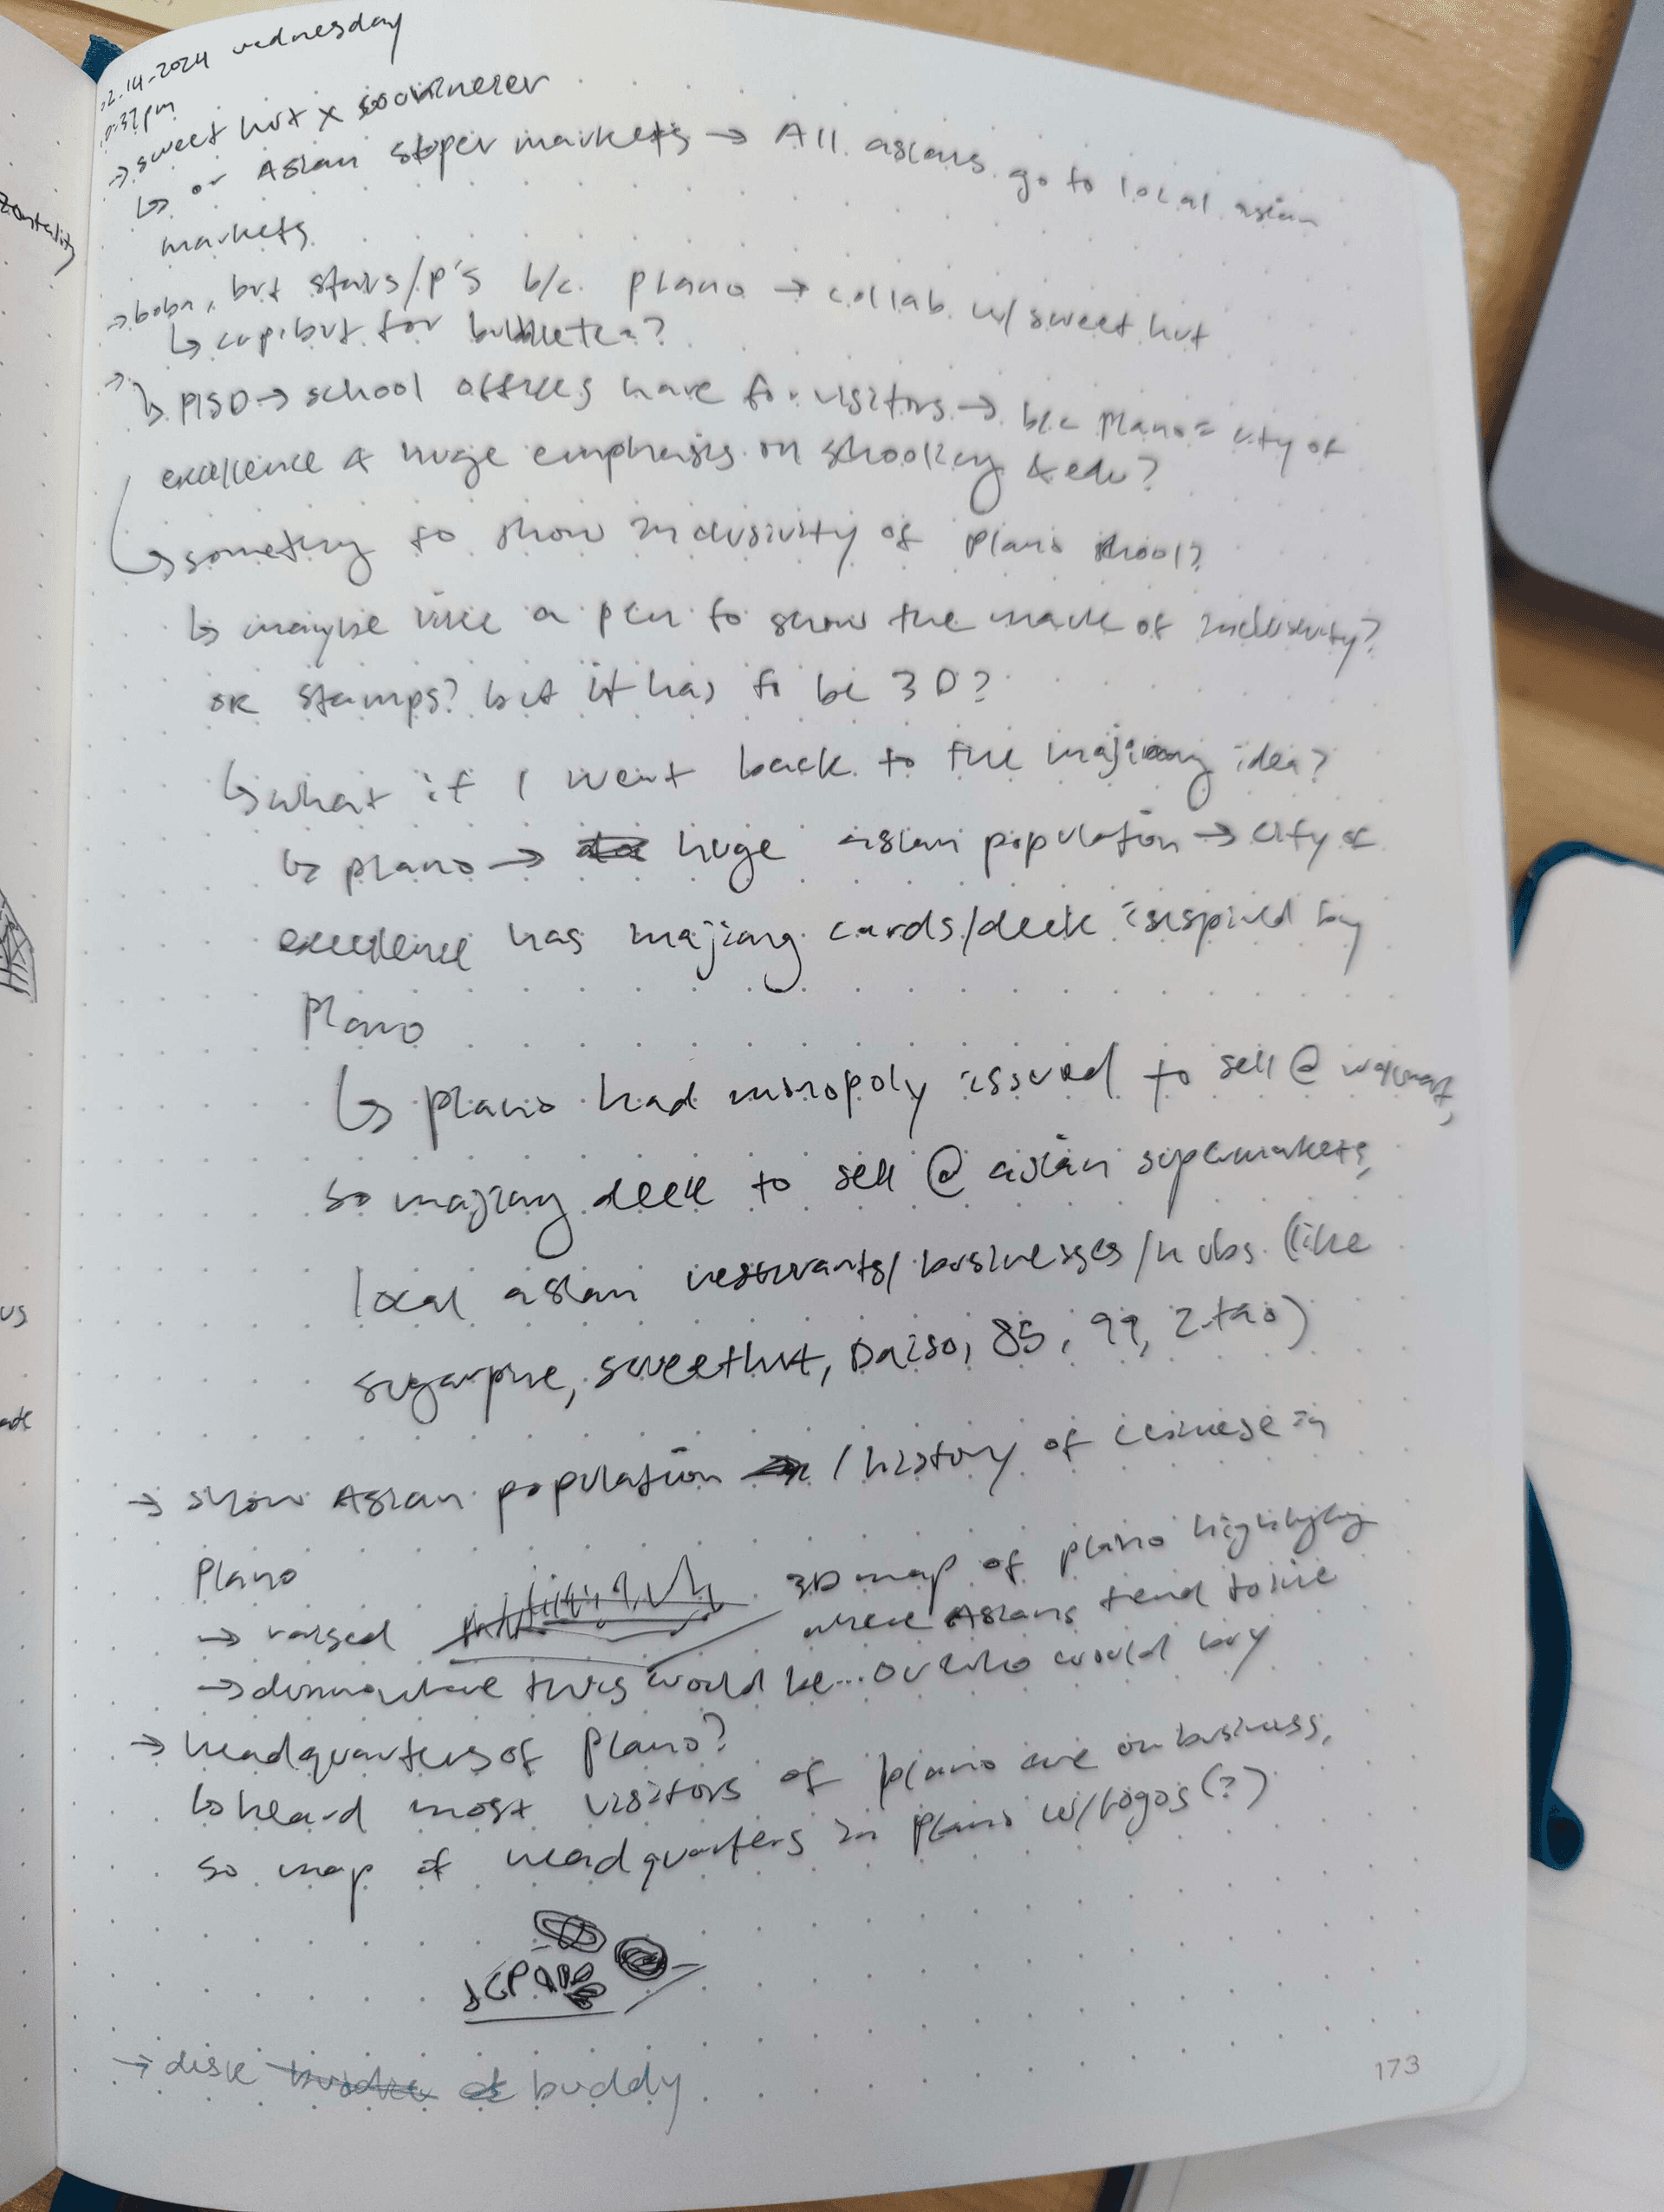 2-14-2024 wednesday
:37pm
→ sweet hut x souvineer
↳ or Asian super markets → All asians go to local asian
markets
→ boba, but stars/p's b/c plano → collab w/ sweet hut
↳ cup, but for bubbletea?
↳ PISD → school offices have for visitors → b/c Plano = city of
excellence & huge emphasis on schooling & edu?
↳ something to show inclusivity of plano school?
↳ maybe like a pen to show the mark of inclusivity?
or stamps? but it has to be 3D?
↳ what if I went back to the majiang idea?
↳ plano → huge asian population → city of
excellence has majiang cards/deck inspired by
Plano
↳ plano had monopoly issued to sell @ walmart,
so majiang deck to sell @ asian supermarkets,
local asian resturants/businesses/hubs (like
sugarpine, sweethut, Daiso, 85, 99, z-tao)
→ show Asian population / history of chinese in
Plano
→ raised
3D map of plano highlighting
where Asians tend to live
→ this would be... or who would buy
→ headquarters of plano?
↳ heard most visitors of plano are on business,
so map of headquarters in plano w/ logos (?)
JCP
→ disk buddy
173
zontality
us